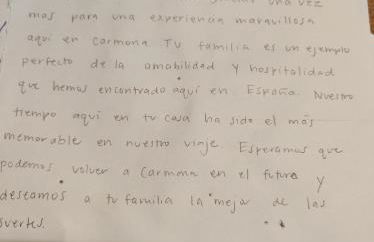 una vez
mas para una experiencia maravillosa
aqui en Carmona Tu familia es un ejemplo
perfecto de la amabilidad y hospitalidad
que hemos encontrado aquí en España. Nuestro
tiempo aqui en tu casa ha sido el más
memorable en nuestro viaje. Esperamos que
podemos volver a Carmona en el future y
deseamos a tu familia la mejor de las
suertes.